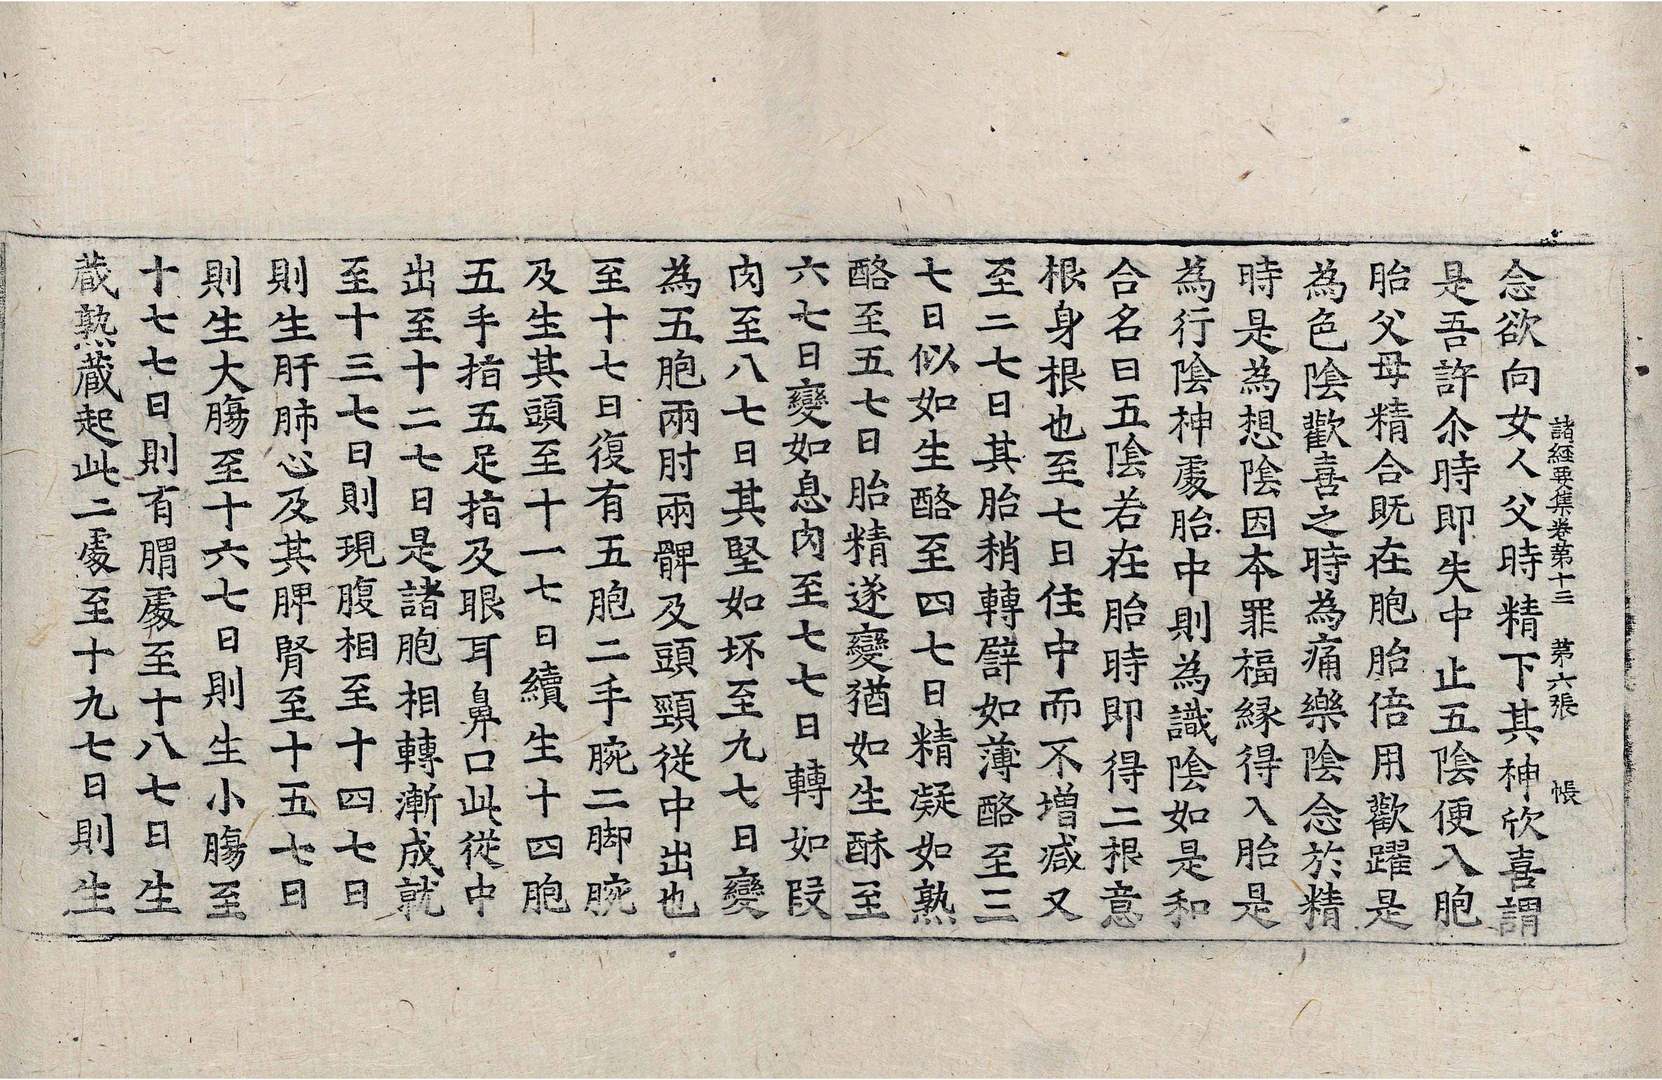 諸經要集卷第十三　第六張　悵
念欲向女人父時精下其神欣喜謂
是吾許尒時即失中止五陰便入胞
胎父母精合既在胞胎倍用歡躍是
為色陰歡喜之時為痛樂陰念於精
時是為想陰因本罪福緣得入胎是
為行陰神處胎中則為識陰如是和
合名曰五陰若在胎時即得二根意
根身根也至七日住中而不增減又
至二七日其胎稍轉譬如薄酪至三
七日似如生酪至四七日精凝如熟
酪至五七日胎精遂變猶如生酥至
六七日變如息肉至七七日轉如段
肉至八七日其堅如坏至九七日變
為五胞兩肘兩髀及頭頸從中出也
至十七日復有五胞二手腕二脚腕
及生其頭至十一七日續生十四胞
五手指五足指及眼耳鼻口此從中
出至十二七日是諸胞相轉漸成就
至十三七日則現腹相至十四七日
則生肝肺心及其脾腎至十五七日
則生大腸至十六七日則生小腸至
十七七日則有胃處至十八七日生
藏熟藏起此二處至十九七日則生